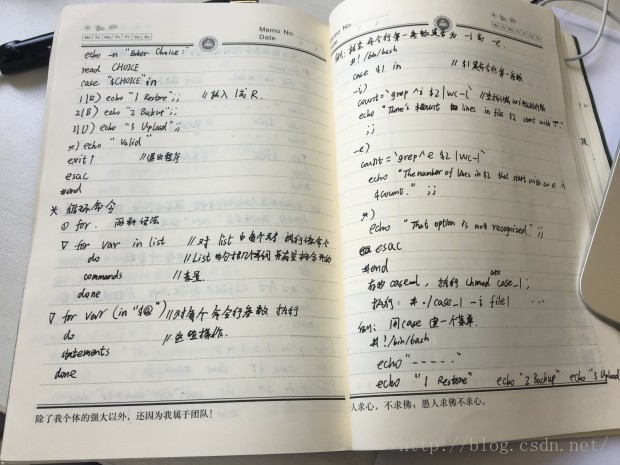 Memo No.
Date
Mo Tu We Th Fr Sa Su
echo -n "Enter Choice:"
read CHOICE
case "$CHOICE" in
1|R) echo "1 Restore";; //输入1或R.
2|B) echo "2 Backup";;
3|U) echo "3 Upload";;
*) echo "Valid"
exit 1 //退出程序
esac
#end
* 循环命令
① for. 两种语法
▽ for var in list //对list中每个元素执行一次命令
do //List为包括几个单词
commands
done
▽ for var (in "$@") //对每个命令行参数执行
do //这些操作.
statements
done
除了我个体的强大以外，还因为我属于团队！
Memo No.
Date
例: 检查命令行第一参数是否为 -i 或 -e.
#!/bin/bash
case $1 in //$1是命令行第一参数
-i)
count=`grep ^i $2 |wc-l`
echo "There's $count lines in file $2 start with "i".
;;
-e)
count=`grep ^e $2 |wc-l`
echo "The number of lines in $2 that start with an e is
$count." ;;
*)
echo "That option is not recognized.";;
esac
#end
存为case_1, 执行chmod case_1;
执行: # ./case_1 -i file1 ...
例: 用case 建一个菜单.
#!/bin/bash
echo "-----"
echo "1 Restore" echo "2 Backup" echo "3 Upload
人求心，不求佛；愚人求佛不求心。
http://blog.csdn.net/